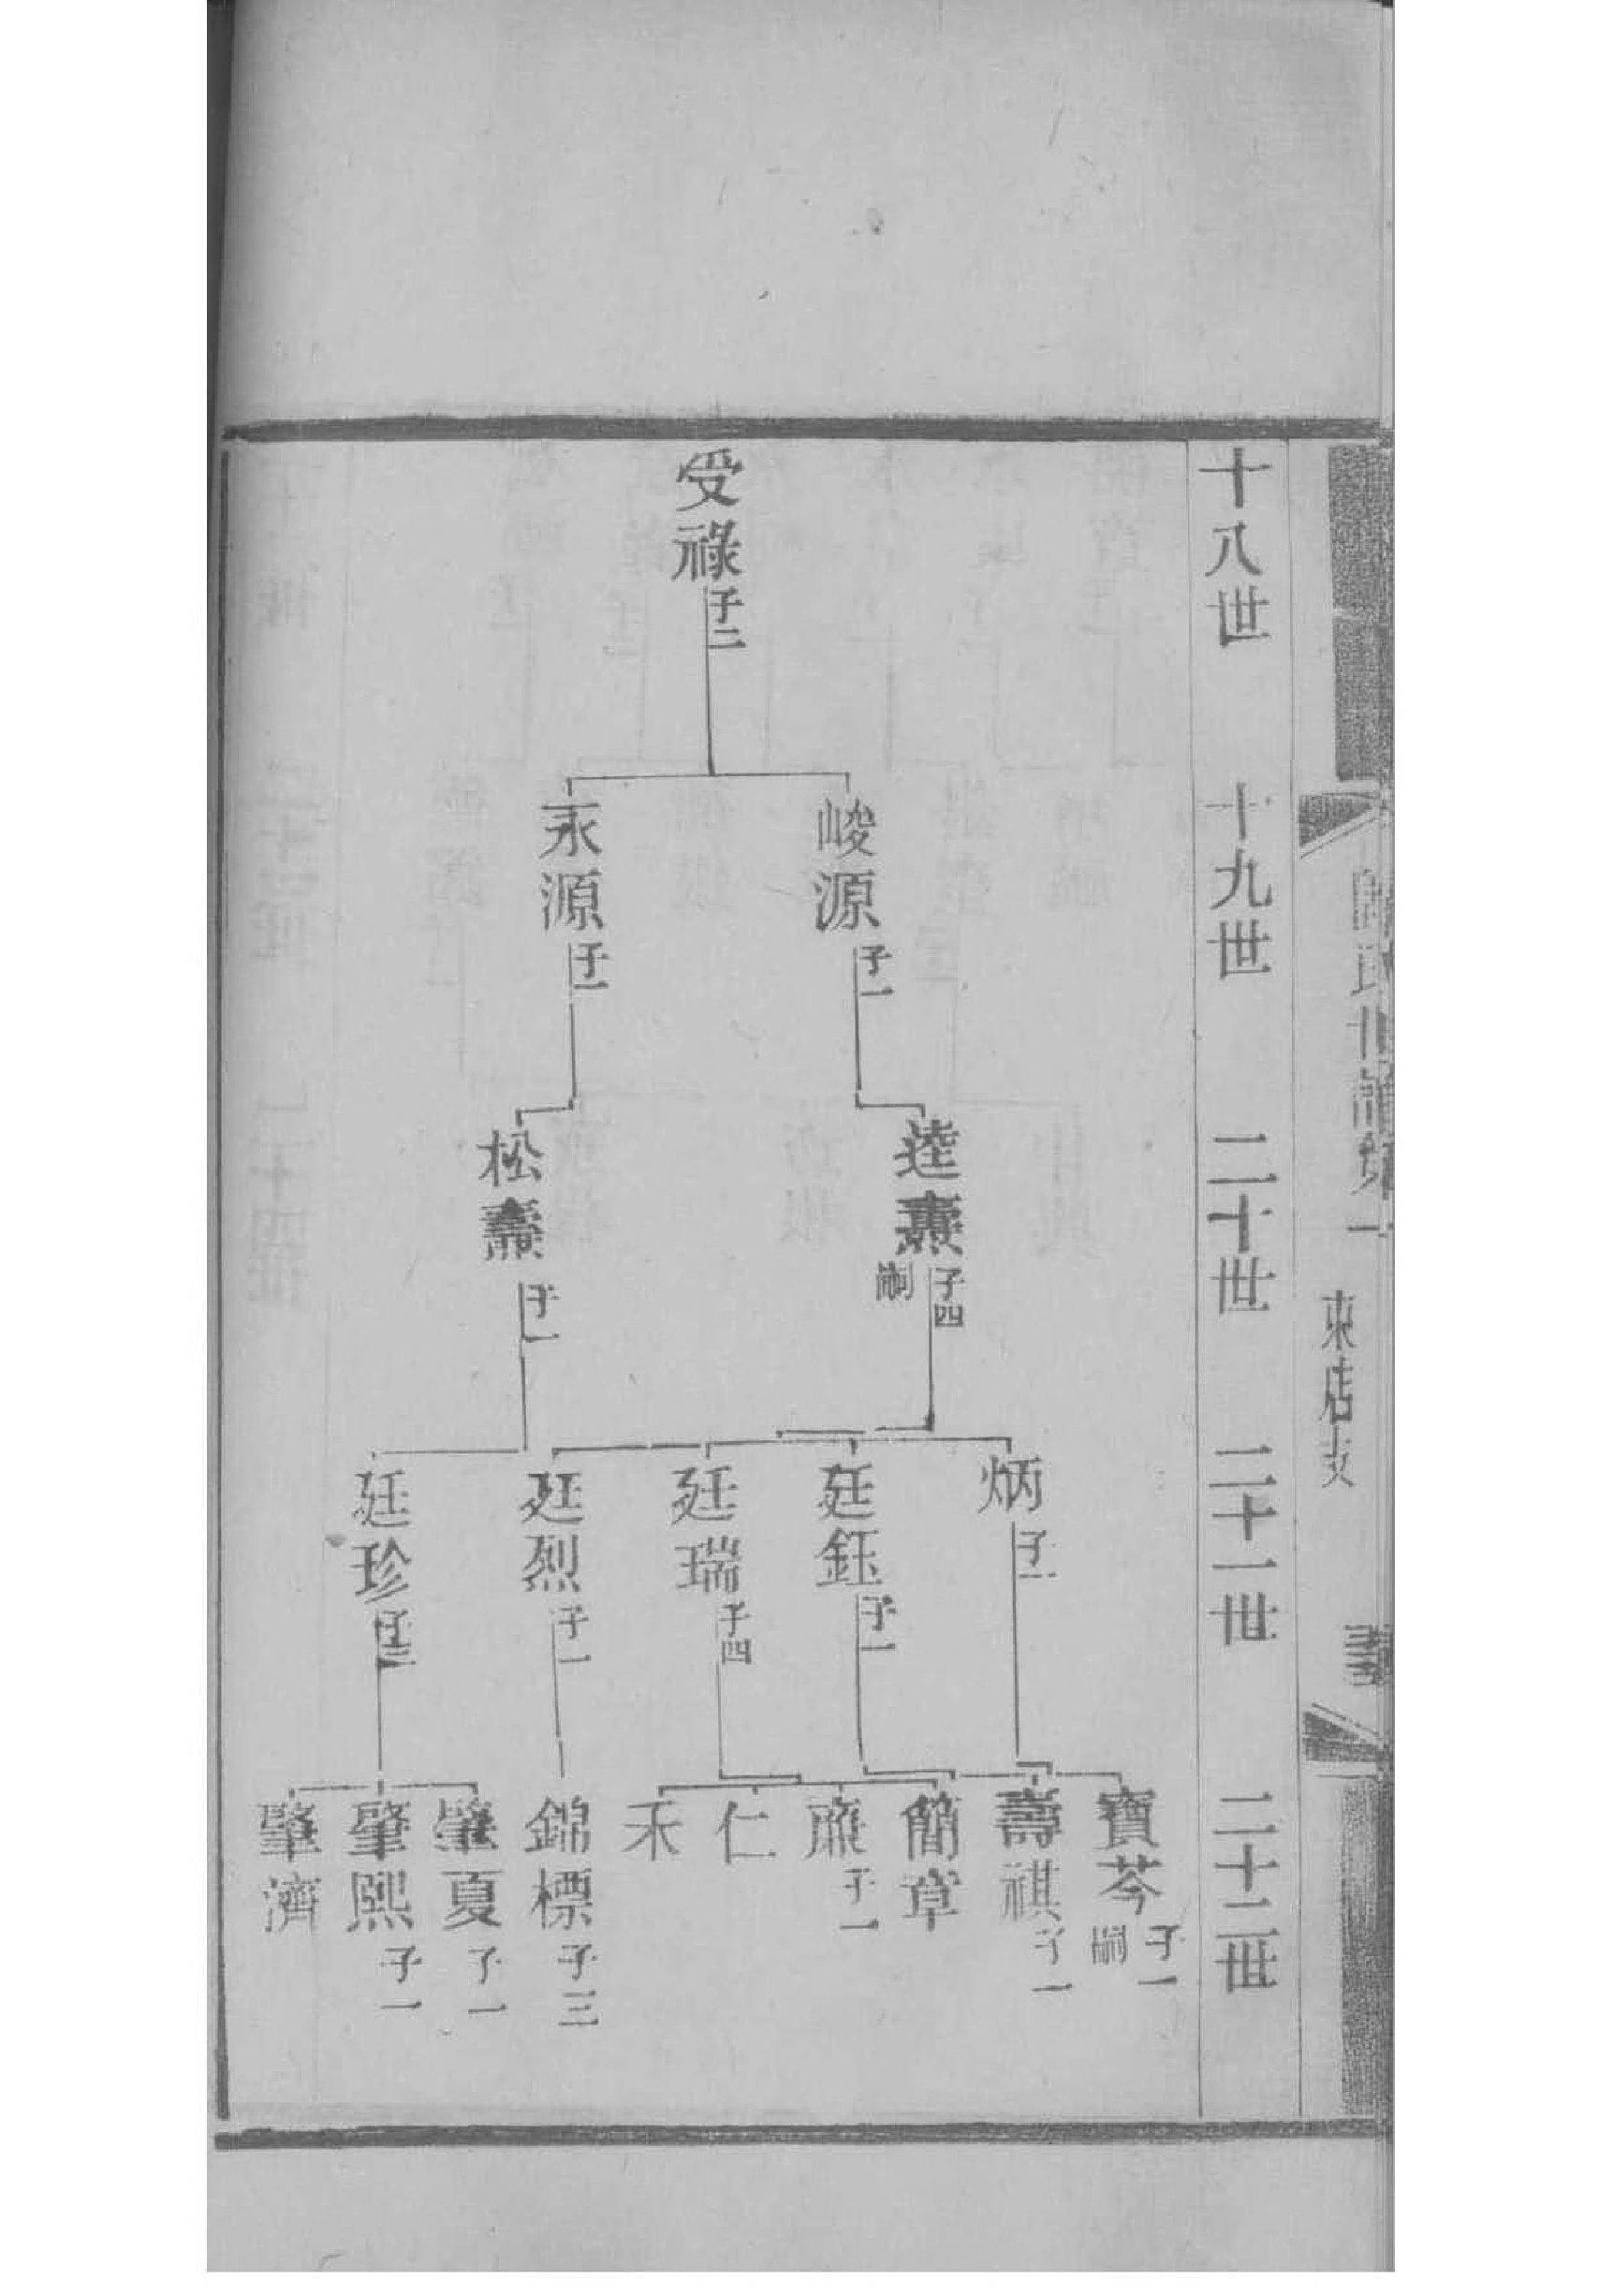 東店支
十八世
十九世
二十世
二十一世
二十二世
受祿 子二
峻源 子一
永源 子一
逵燾 子四 嗣
松燾 子一
炳 子二
廷鈺 子一
廷瑞 子四
廷烈 子一
廷珍 子三
寶芩 子一 嗣
壽祺 子一
簡章
薦 子一
仁
禾
錦標 子三
肇夏 子一
肇熙 子一
肇濟